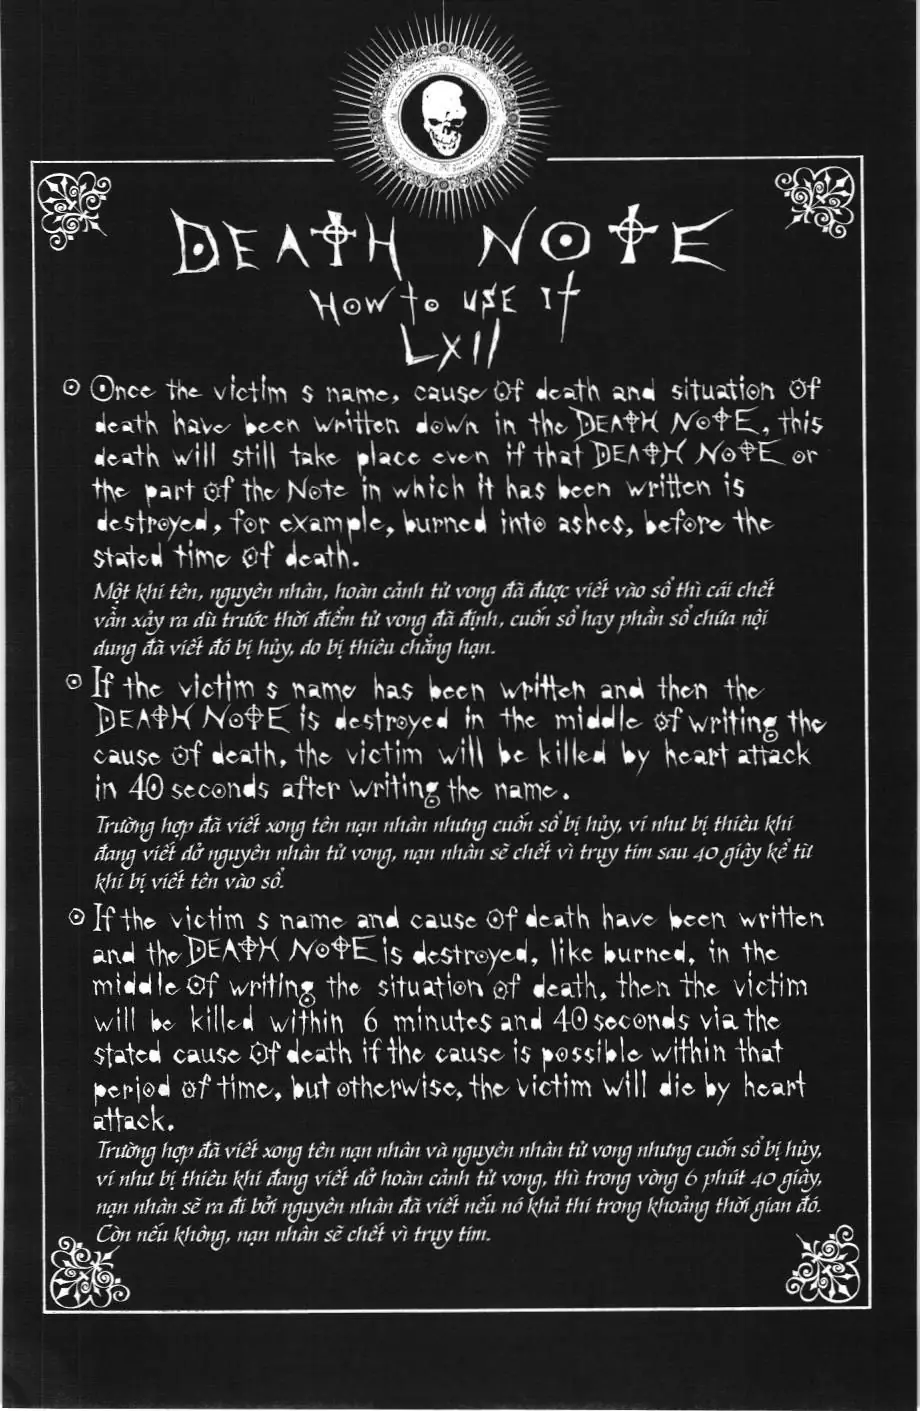 DEATH NOTE
HOW to USE It
LXII
Once the victim s name, cause of death and situation of
death have been written down in the DEATH NOTE, this
death will still take place even if that DEATH NOTE or
the part of the Note in which it has been written is
destroyed, for example, burned into ashes, before the
stated time of death.
Một khi tên, nguyên nhân, hoàn cảnh tử vong đã được viết vào sổ thì cái chết
vẫn xảy ra dù trước thời điểm tử vong đã định, cuốn sổ hay phần sổ chứa nội
dung đã viết đó bị hủy, do bị thiêu chẳng hạn.
If the victim s name has been written and then the
DEATH NOTE is destroyed in the middle of writing the
cause of death, the victim will be killed by heart attack
in 40 seconds after writing the name.
Trường hợp đã viết xong tên nạn nhân nhưng cuốn sổ bị hủy, ví như bị thiêu khi
đang viết dở nguyên nhân tử vong, nạn nhân sẽ chết vì trụy tim sau 40 giây kể từ
khi bị viết tên vào sổ.
If the victim s name and cause of death have been written
and the DEATH NOTE is destroyed, like burned, in the
middle of writing the situation of death, then the victim
will be killed within 6 minutes and 40 seconds via the
stated cause of death if the cause is possible within that
period of time, but otherwise, the victim will die by heart
attack.
Trường hợp đã viết xong tên nạn nhân và nguyên nhân tử vong nhưng cuốn sổ bị hủy,
ví như bị thiêu khi đang viết dở hoàn cảnh tử vong, thì trong vòng 6 phút 40 giây,
nạn nhân sẽ ra đi bởi nguyên nhân đã viết nếu nó khả thi trong khoảng thời gian đó.
Còn nếu không, nạn nhân sẽ chết vì trụy tim.